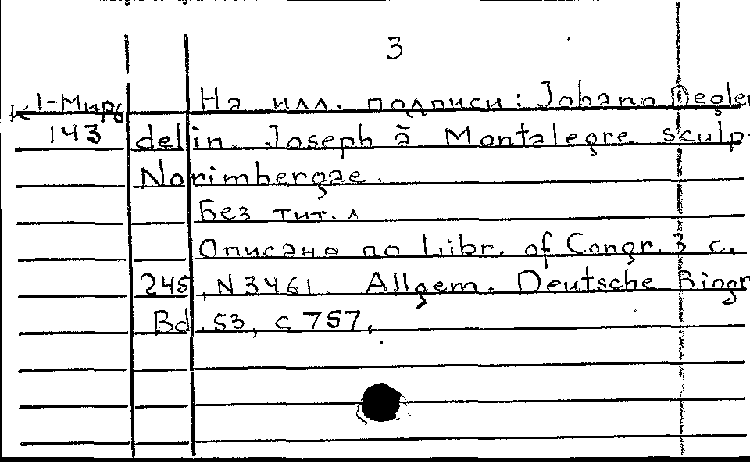 3
К 1-Мир На илл. подписи: Johann Degler
143 delin. Joseph à Montalegre sculp.
Norimbergae.
Без тит. л
Описано по Libr. of Congr. 3 с.
245, N 3461. Allgem. Deutsche Biogr
Bd. 53, с 757.